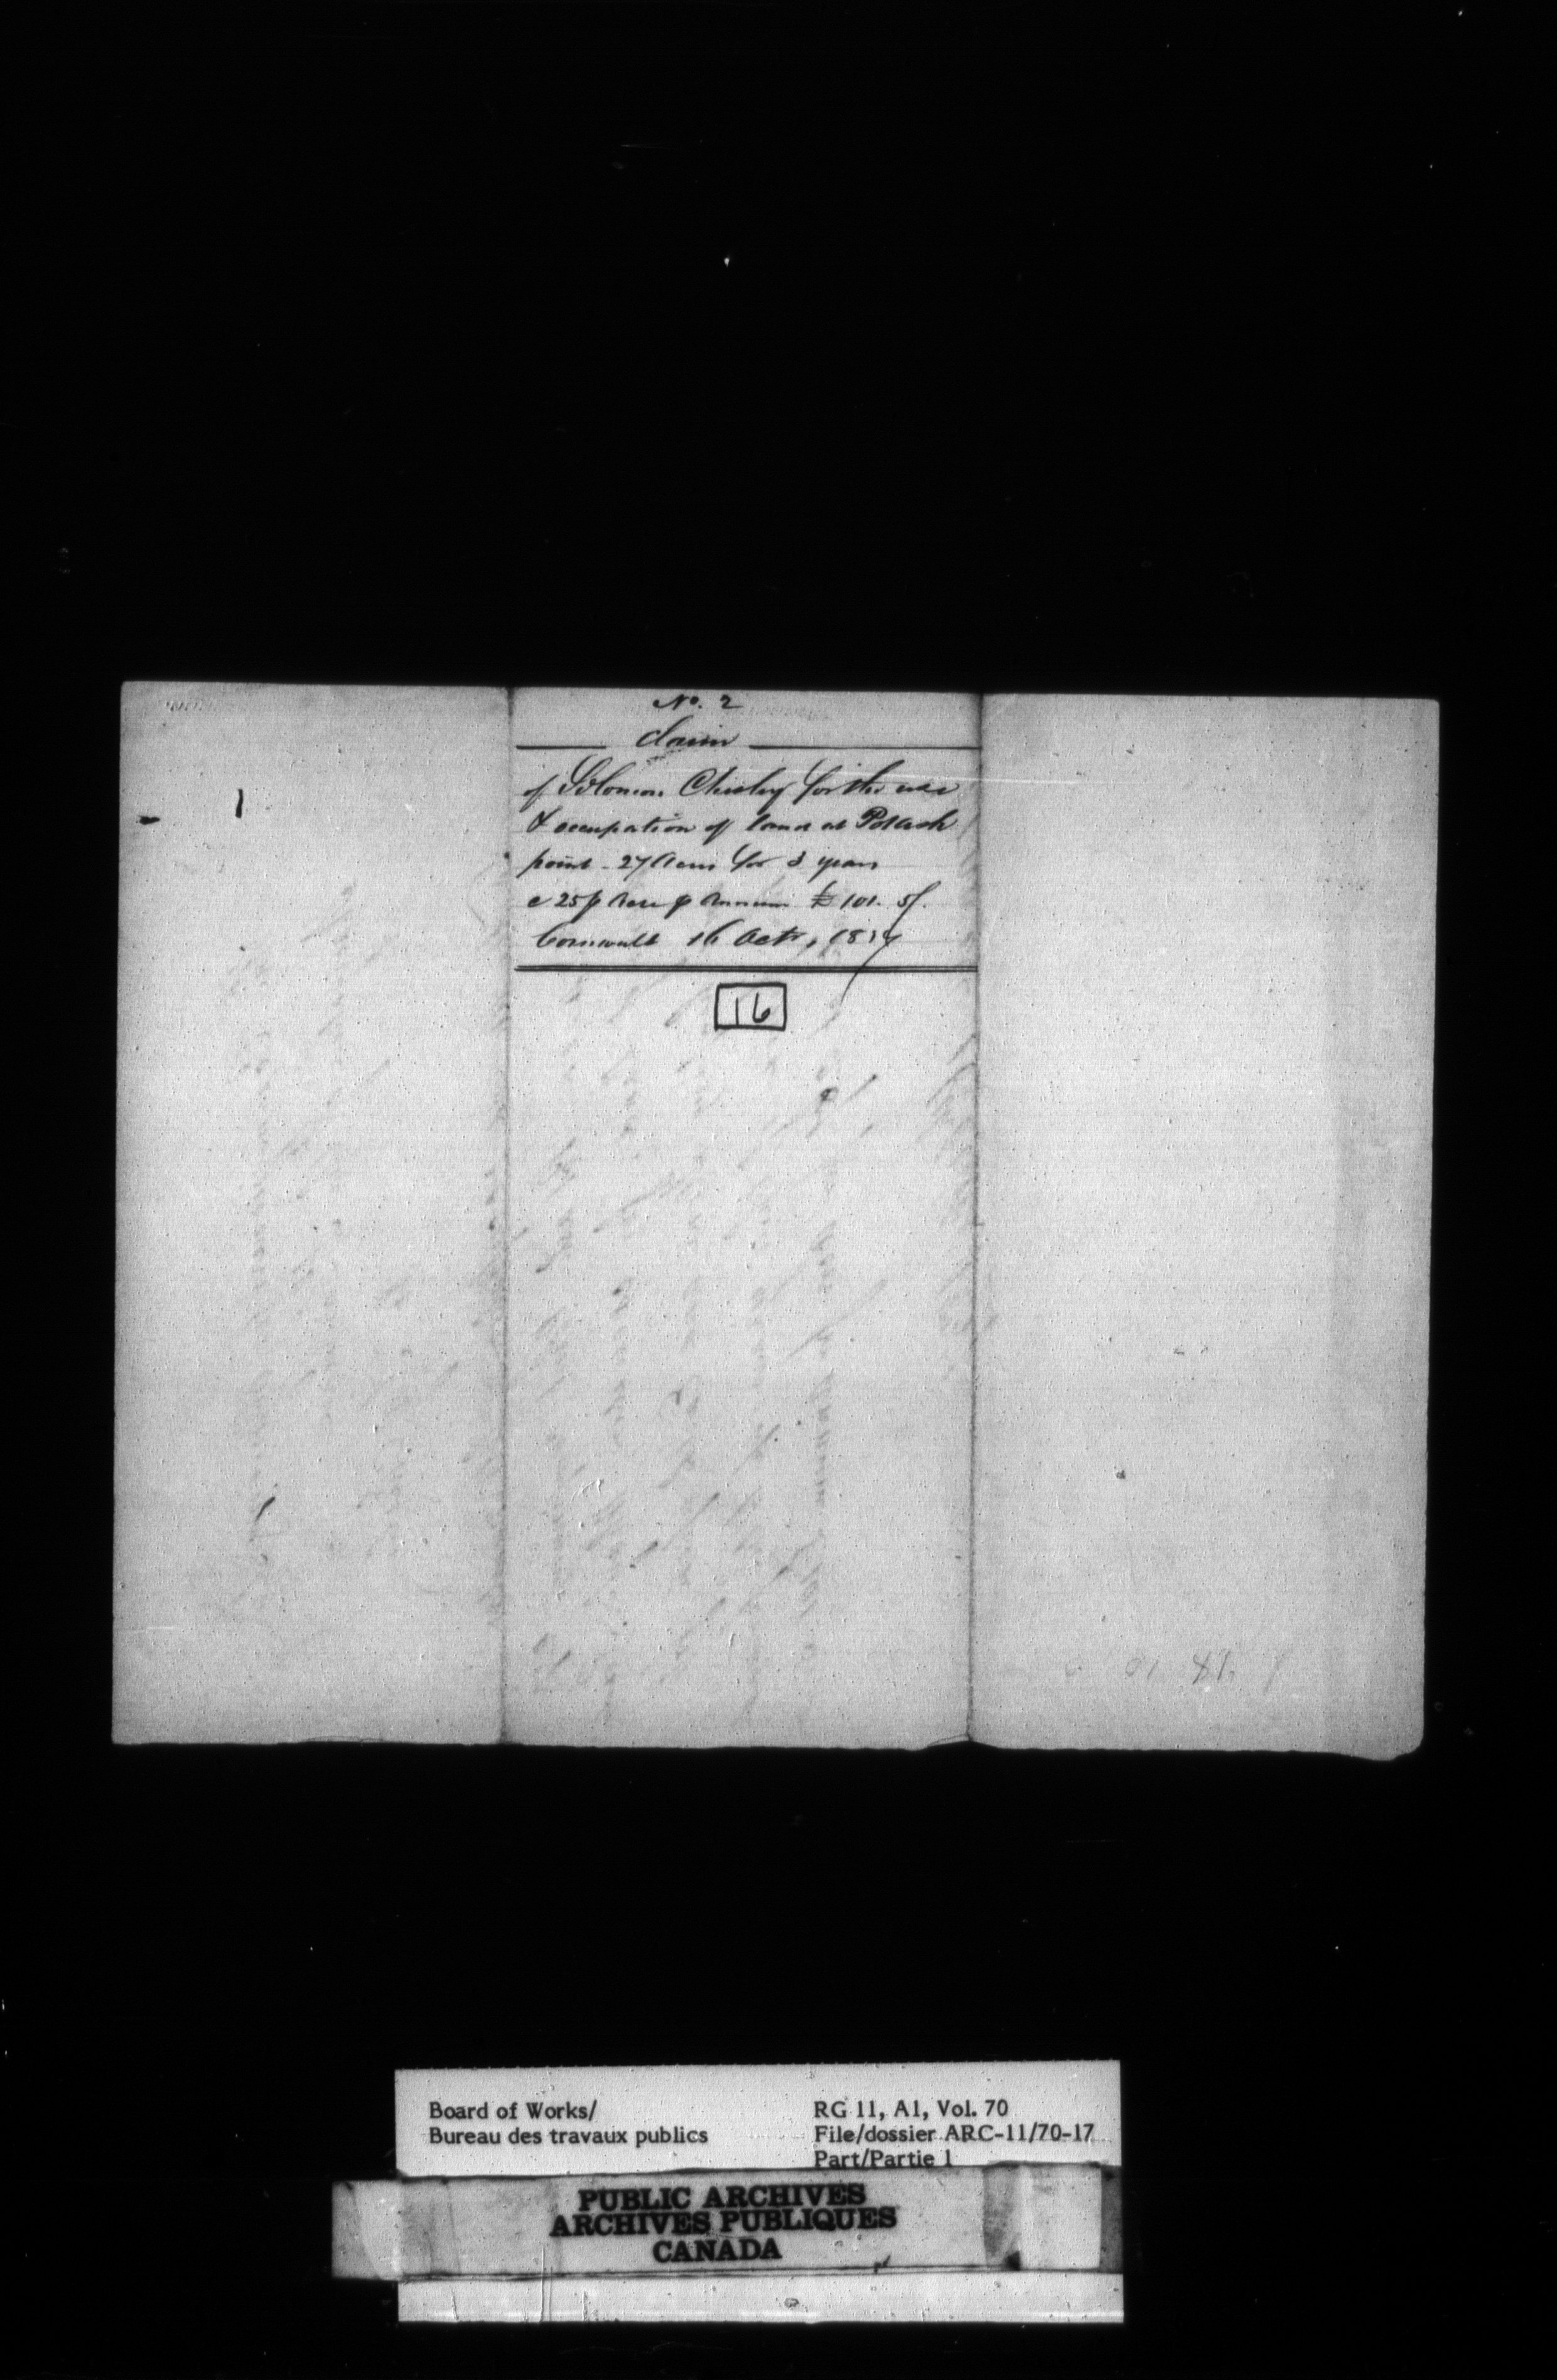 No. 2
Claim
of Solomon Chesley for the use
& occupation of land at Potash
point - 27 Acres for 3 years
@ 25/ p Acre p Annum £ 101. 5/.
Cornwall 16 Octr, 1837
16
Board of Works/
Bureau des travaux publics
RG 11, A1, Vol. 70
File/dossier ARC-11/70-17
Part/Partie 1
PUBLIC ARCHIVES
ARCHIVES PUBLIQUES
CANADA